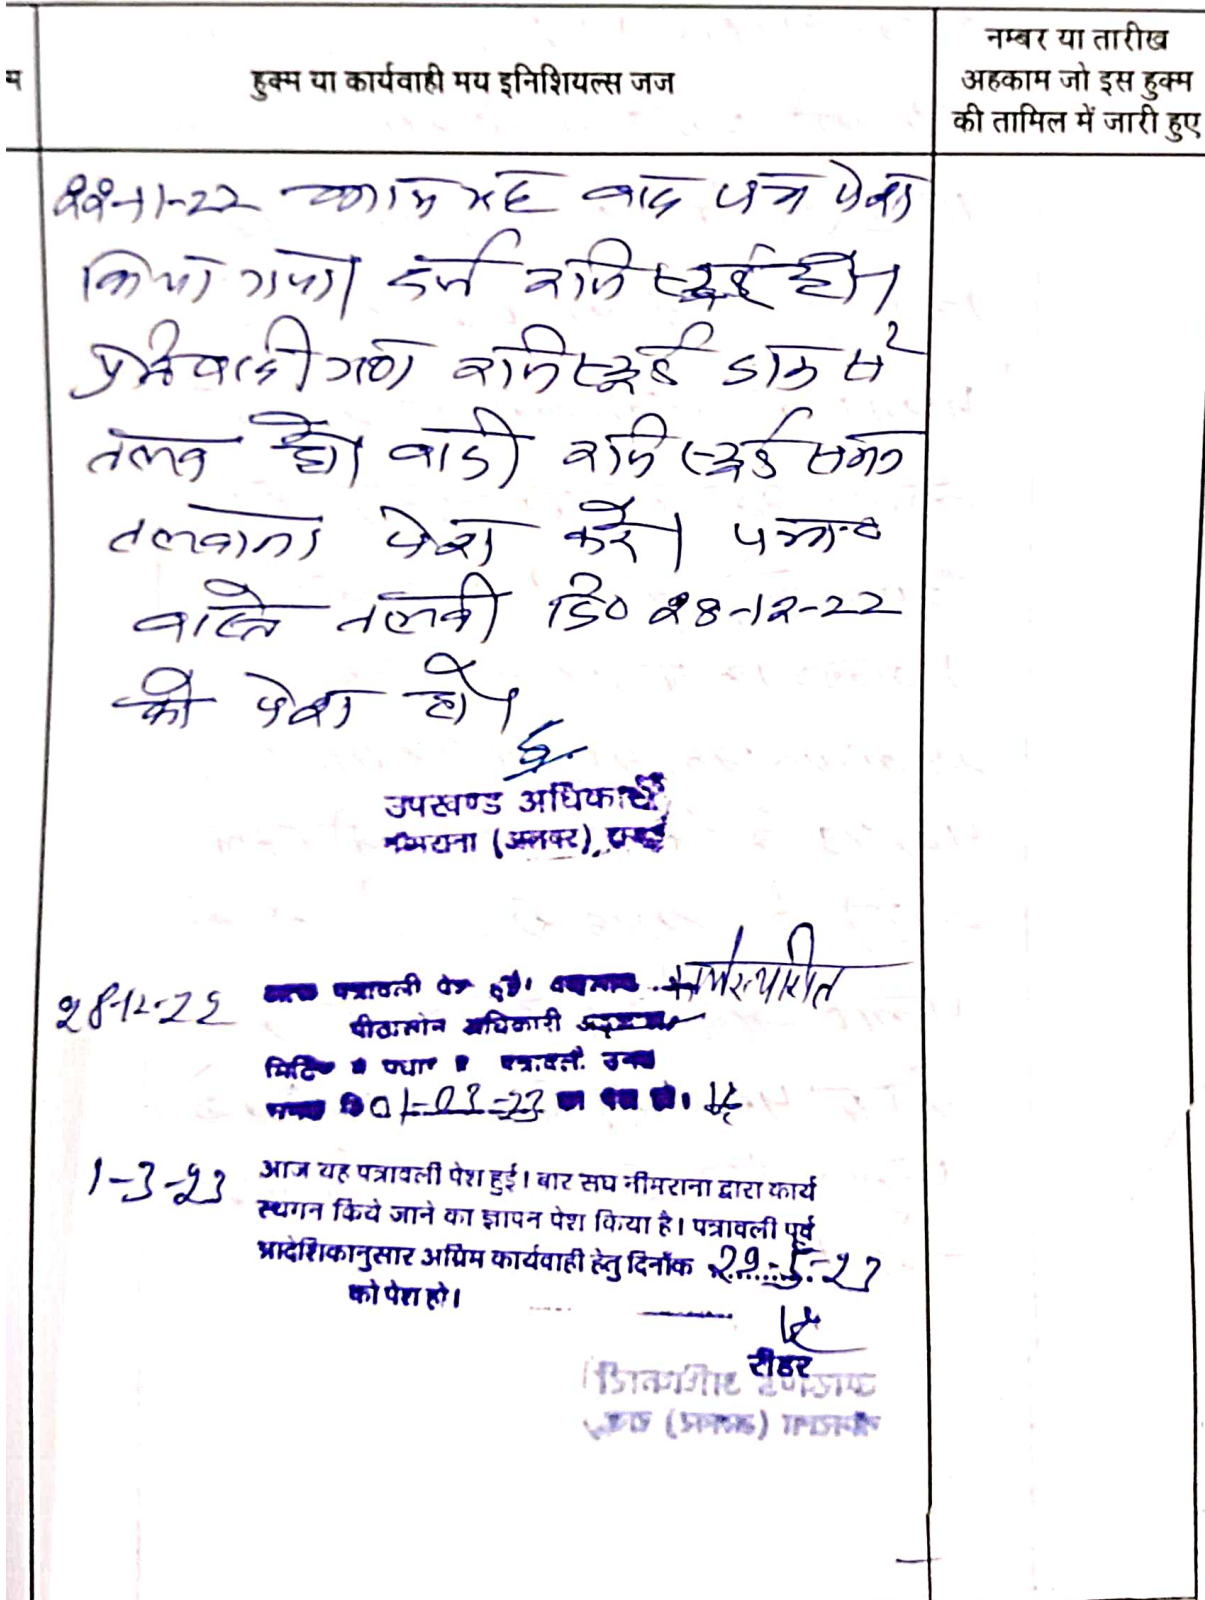 म
हुक्म या कार्यवाही मय इनिशियल्स जज
नम्बर या तारीख
अहकाम जो इस हुक्म
की तामिल में जारी हुए
22-11-22 आज यह वाद पत्र पेश
किया गया। दर्ज रजिस्टर्ड हो।
प्रतिवादी गण रजिस्टर्ड डाक से
तलब हो। वादी रजिस्टर्ड समन
तलवाना पेश करें।
वास्ते तलबी दि० 28-12-22
को पेश हो।
उपखण्ड अधिकारी
नीमराना (अलवर)
28-12-22 पत्रावली पेश हुई।
अधिकारी
01-03-23
1-3-23 आज यह पत्रावली पेश हुई। बार संघ नीमराना द्वारा कार्य
स्थगन किये जाने का ज्ञापन पेश किया है। पत्रावली पूर्व
आदेशिकानुसार अग्रिम कार्यवाही हेतु दिनाँक 29-5-23
को पेश हो।
रीडर